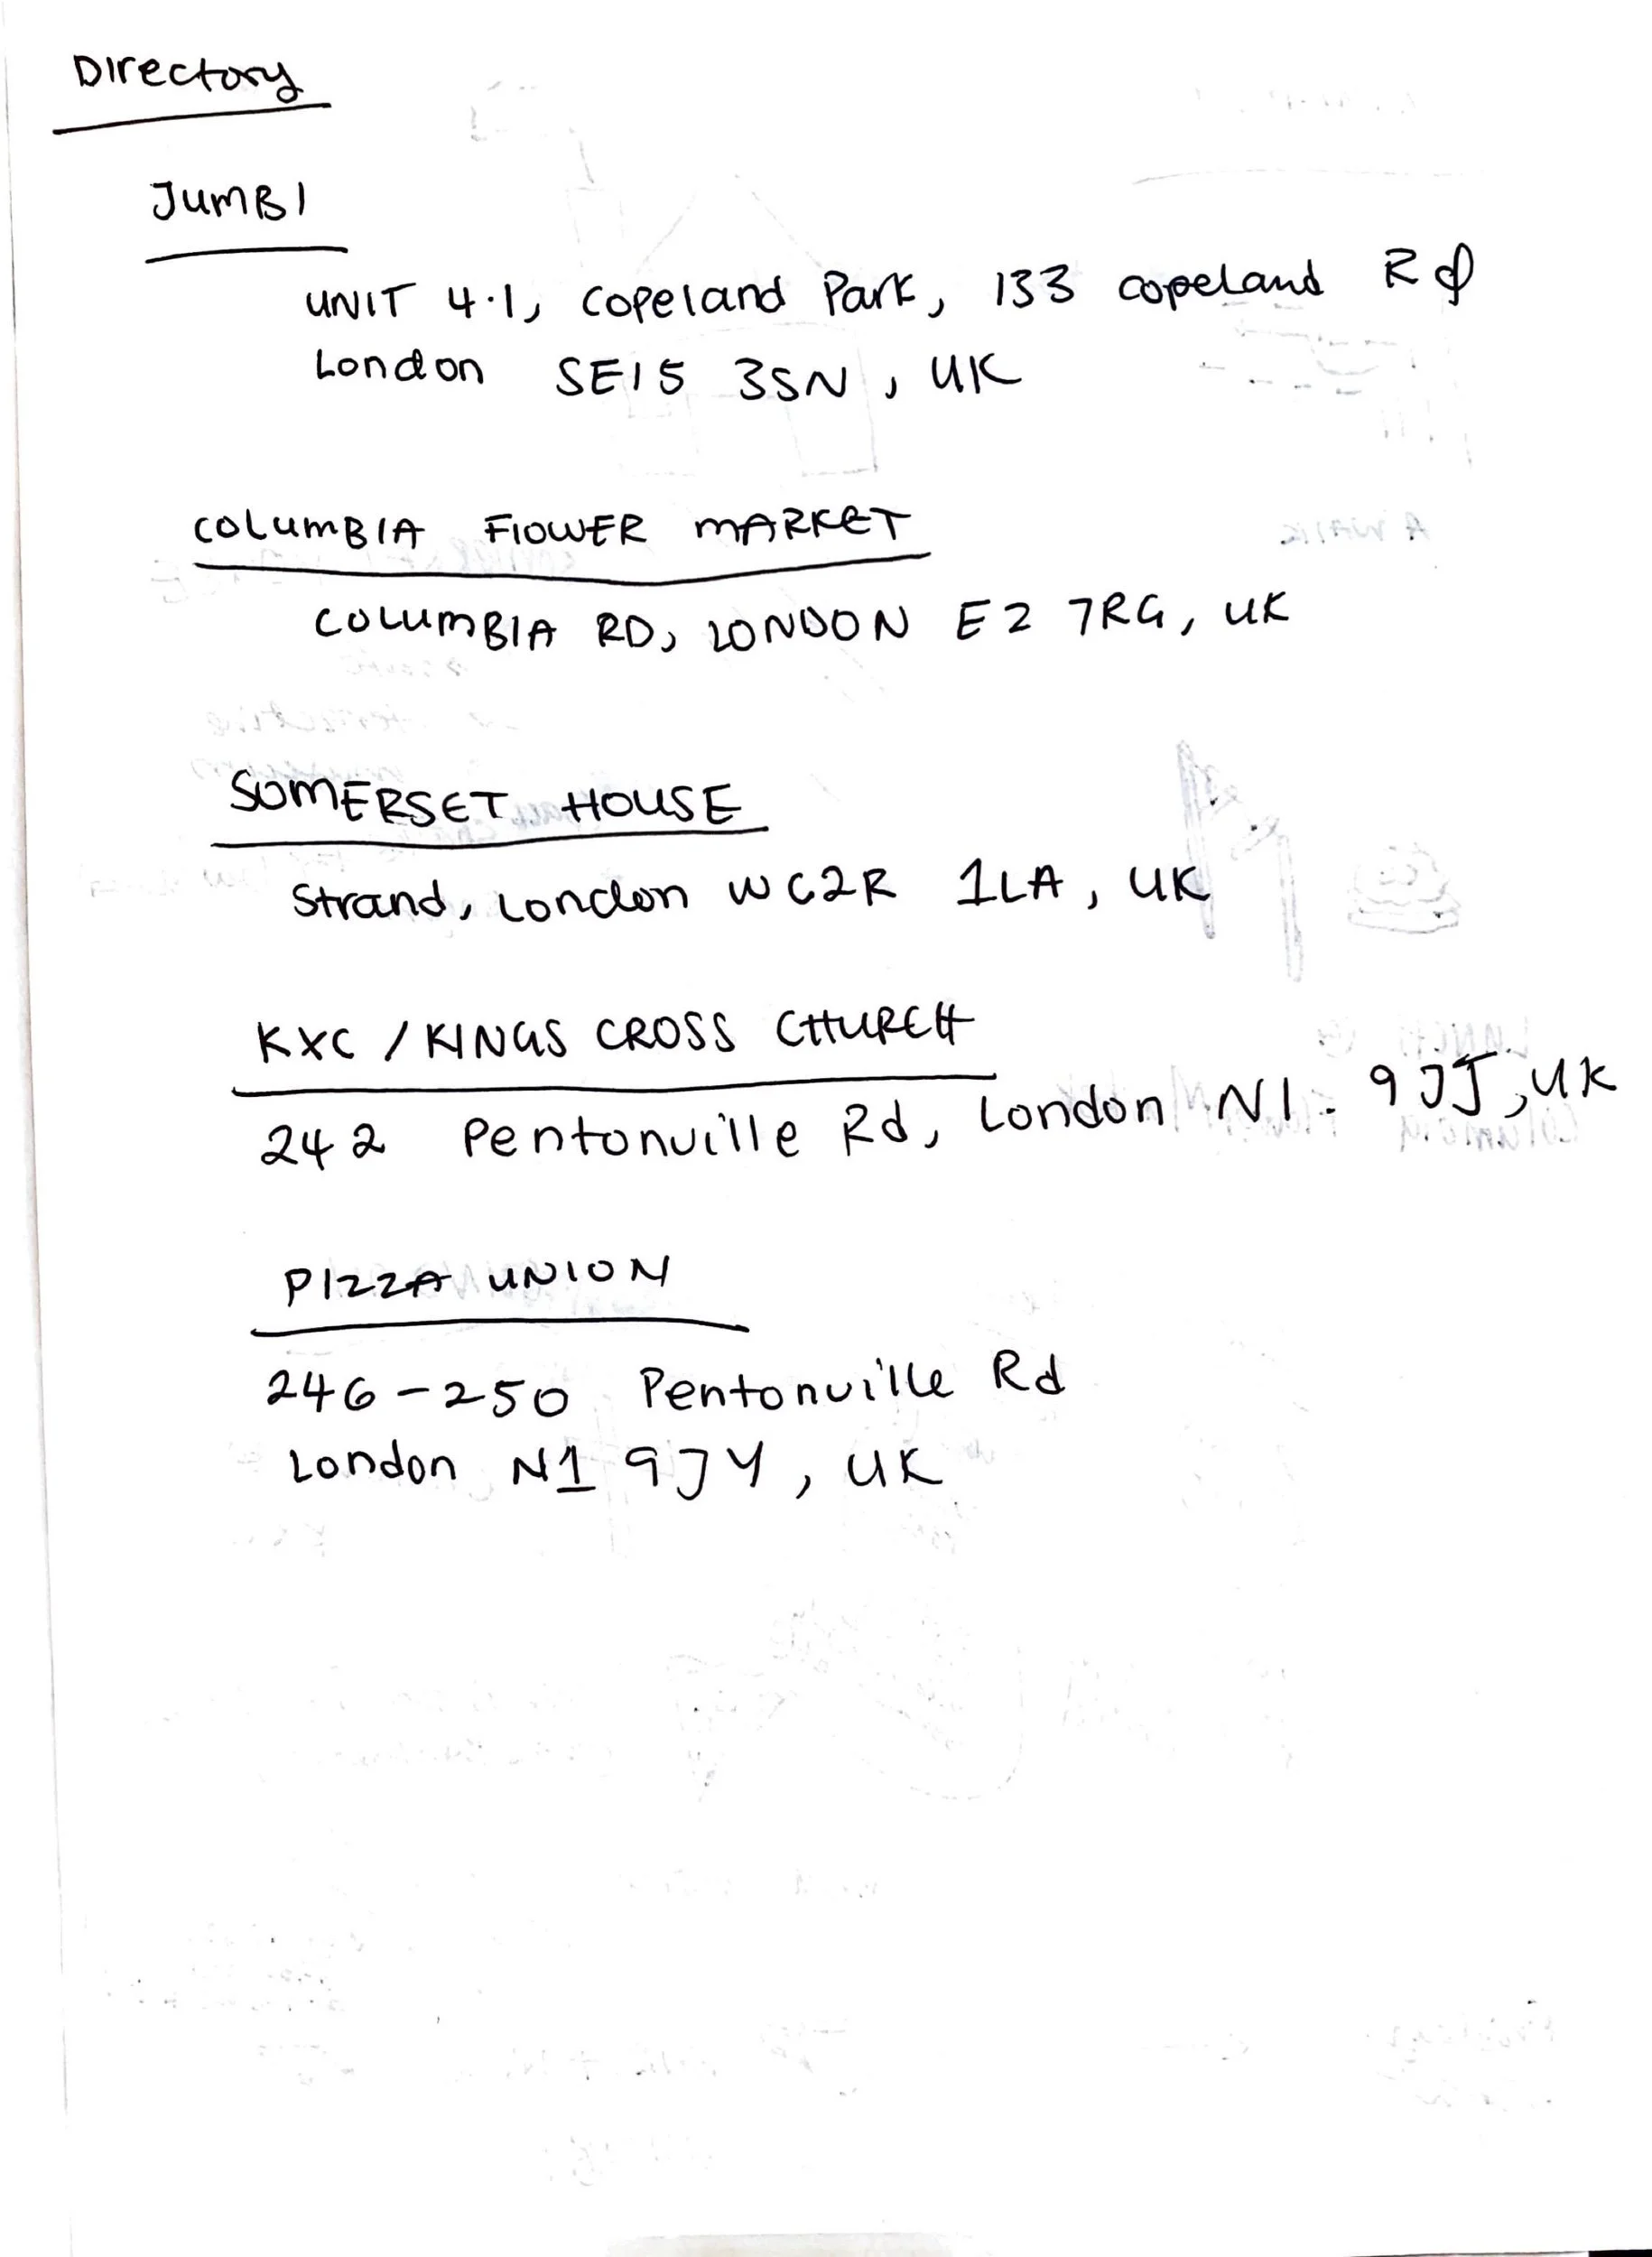 Directory
JUMBI
UNIT 4.1, Copeland Park, 133 Copeland Rd
London SE15 3SN, UK
COLUMBIA FLOWER MARKET
COLUMBIA RD, LONDON E2 7RG, UK
SOMERSET HOUSE
Strand, London WC2R 1LA, UK
KXC / KINGS CROSS CHURCH
242 Pentonville Rd, London N1. 9JJ, UK
PIZZA UNION
246-250 Pentonville Rd
London N1 9JY, UK